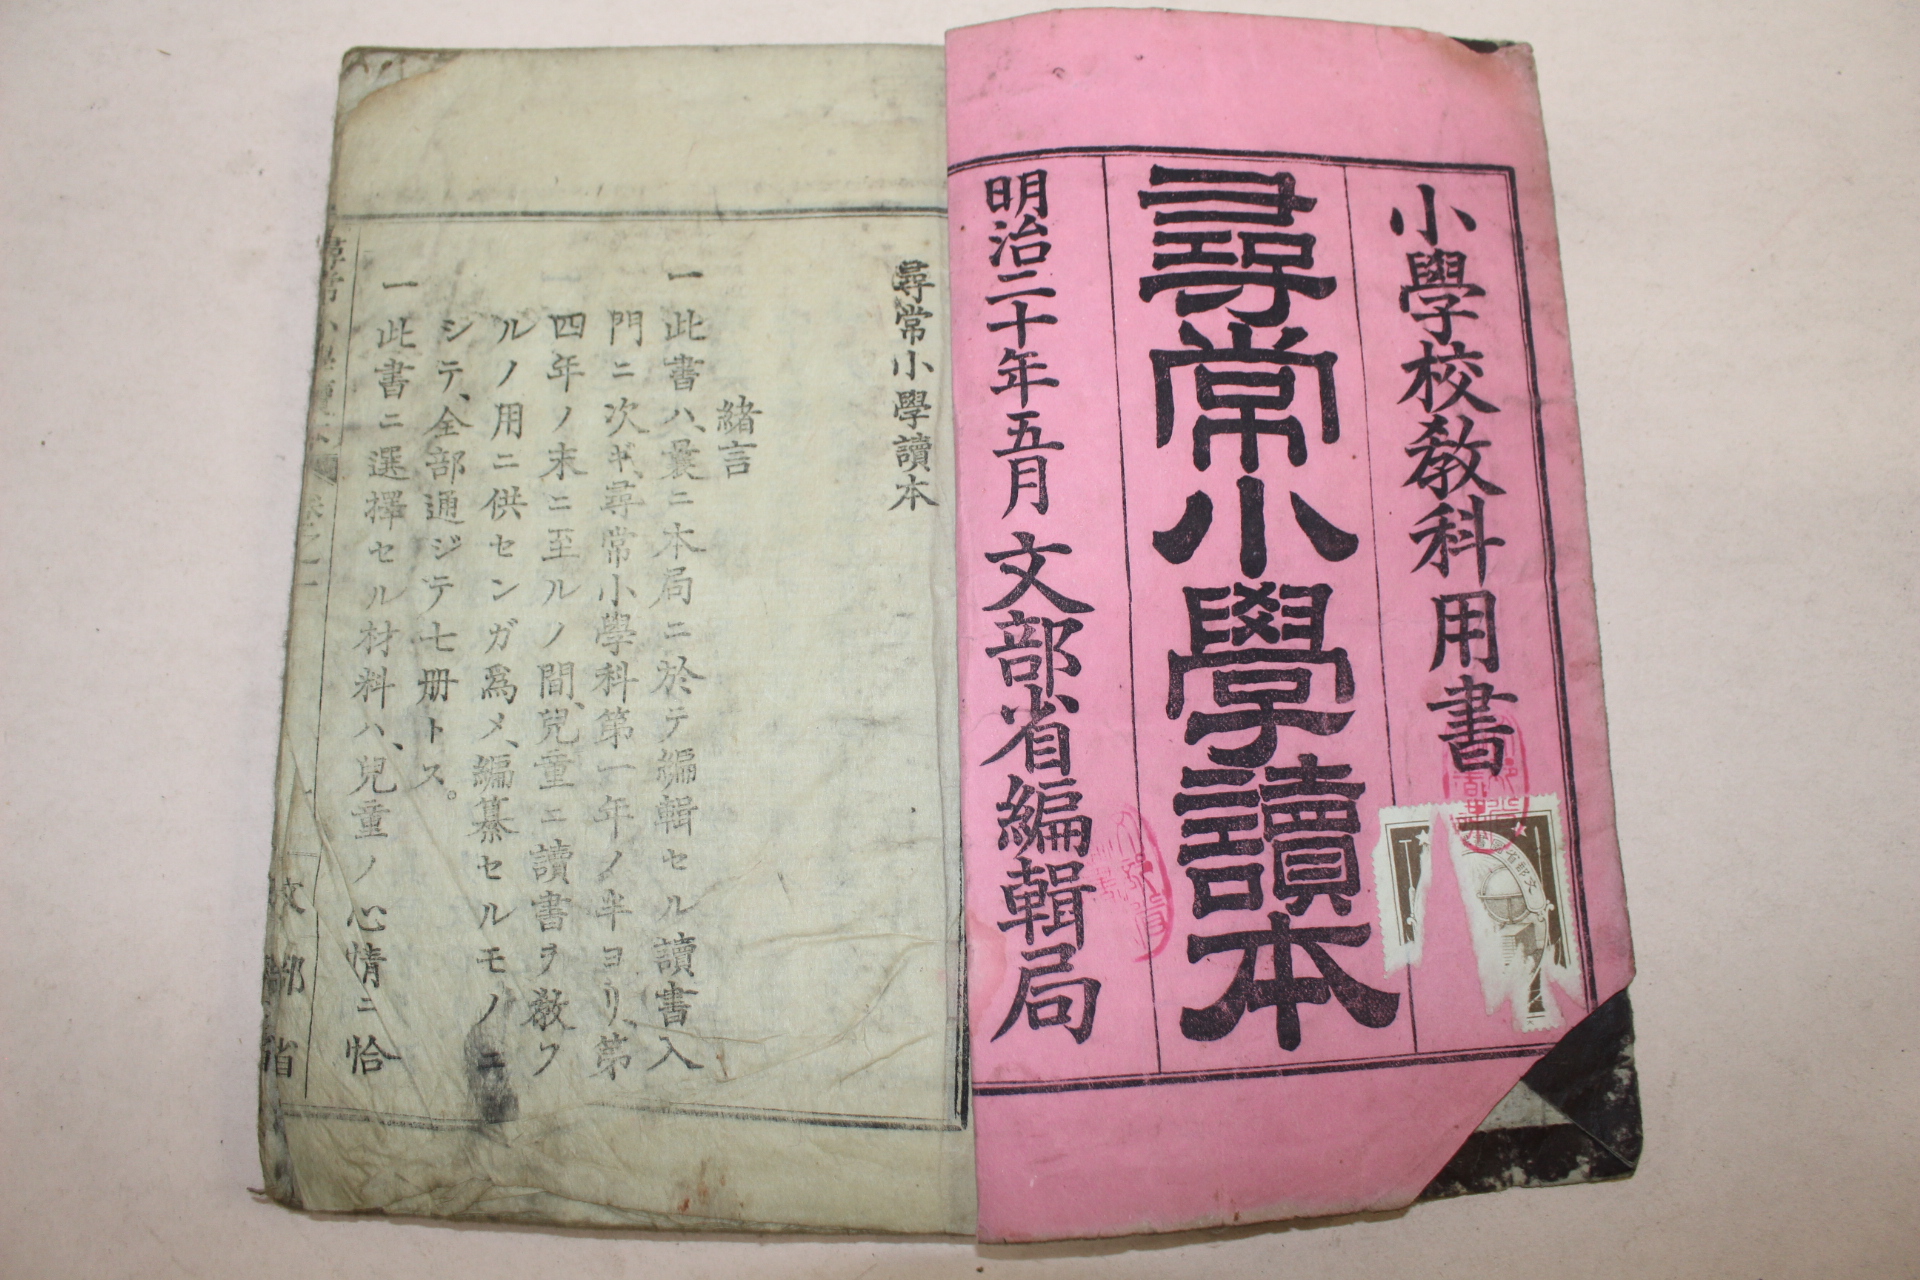 小學校敎科用書
尋常小學讀本
明治二十年五月 文部省編輯局
文部省
尋常小學讀本
緖言
一 此書ハ、曩ニ本局ニ於テ編輯セル讀書入
門ニ次ギ、尋常小學科第一年ノ半ヨリ、第
四年ノ末ニ至ルノ間、兒童ニ讀書ヲ敎フ
ルノ用ニ供センガ爲メ、編纂セルモノニ
シテ、全部通ジテ七册トス。
一 此書ニ選擇セル材料ハ、兒童ノ心情ニ恰
尋常小學讀本 卷之一
文部省